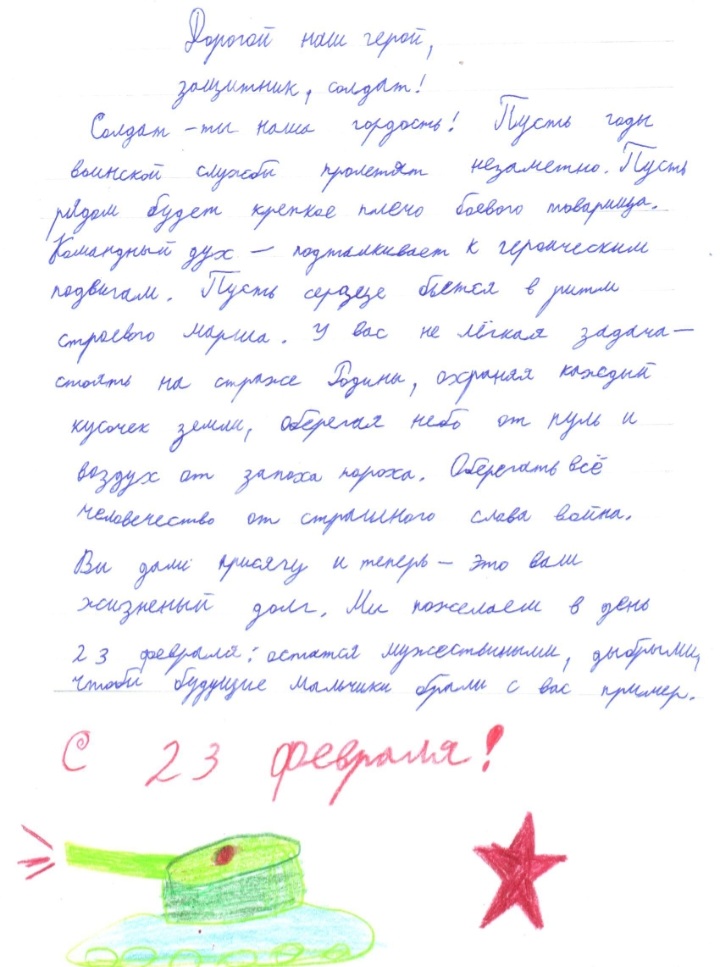 Дорогой наш герой,
защитник, солдат!
Солдат - ты наша гордость! Пусть годы
воинской службы пролетят незаметно. Пусть
рядом будет крепкое плечо боевого товарища.
Командный дух — подталкивает к героическим
подвигам. Пусть сердце бьется в ритм
строевого марша. У вас не лёгкая задача —
стоять на страже Родины, охраняя каждый
кусочек земли, оберегая небо от пуль и
воздух от запаха пороха. Оберегать всё
человечество от страшного слава война.
Вы дали присягу и теперь — это ваш
жизненый долг. Мы пожелаем в день
23 февраля: остатся мужествиными, дыбрыми,
чтобы будущие мальчики брали с вас пример.
С 23 февраля!